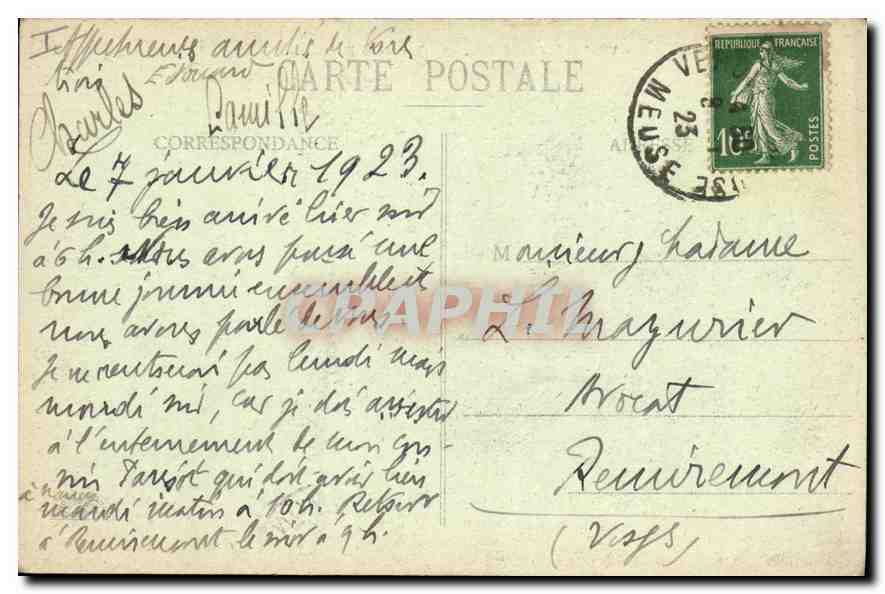 Affectueuse amitié de Vore
trois Edouard
Charles Camille
CARTE POSTALE
CORRESPONDANCE
Le 7 janvier 1923.
Je suis bien arrivé hier soir
à 6 h. Nous avons passé une
bonne journée ensemble et
nous avons parlé de vous
Je ne rentrerai pas lundi mais
mardi soir, car je dois assister
à l'enterrement de mon cou-
sin qui doit avoir lieu
à Nancy
mardi matin à 10 h. Retour
à Remiremont le soir à 9 h.
REPUBLIQUE FRANÇAISE
10c
POSTES
VE
MEUSE
8
23
Monsieur Madame
L. Mazurier
Avocat
Remiremont
(Vosges)
CPAPHIL